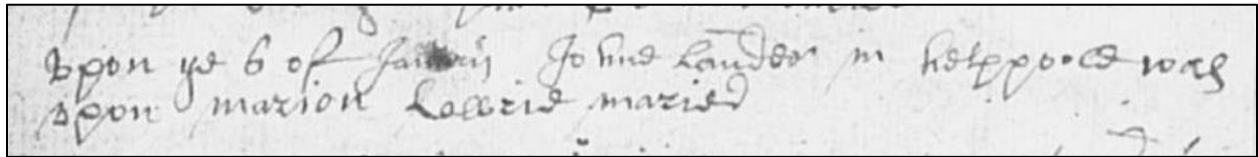 Upon ye 6 of Januarii Johne Lauder in netppoole was
upon marion Lawrie maried